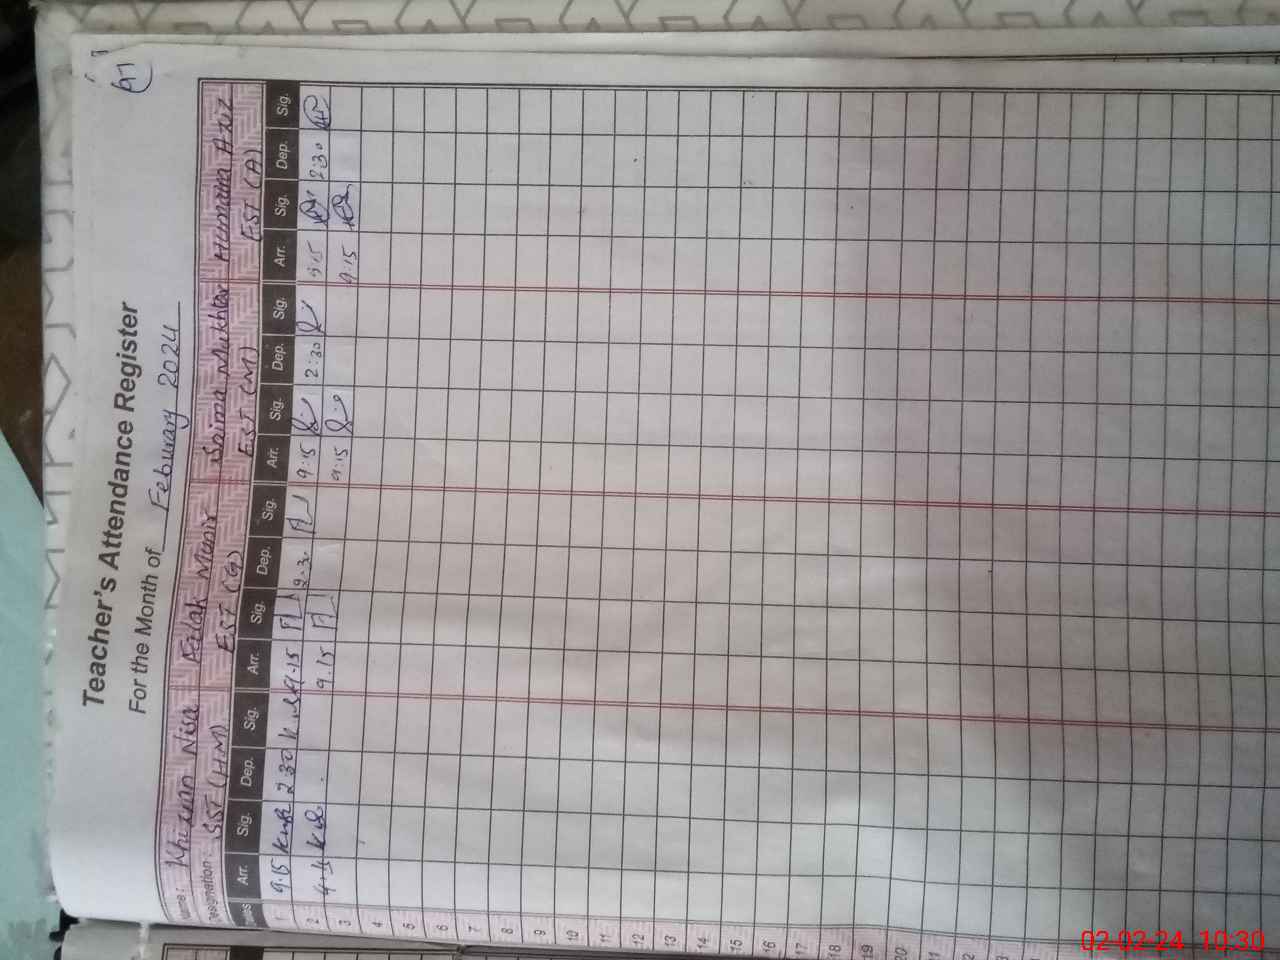 Teacher's Attendance Register
For the Month of Febuary 2024
Name: Khizran Nisa Falak Munir Saima Mukhtar Humaira Aziz
Designation: SST (HM) EST (G) EST (M) EST (A)
Dates Arr. Sig. Dep. Sig. Arr. Sig. Dep. Sig. Arr. Sig. Dep. Sig. Arr. Sig. Dep. Sig.
1 9.15 2 30 9.15 2.30 9:15 2:30 9.15 2:30
2 9.15 9:15 9.15
3
4
5
6
7
8
9
10
11
12
13
14
15
16
17
18
19
20
21
22
23
02-02-24 10:30